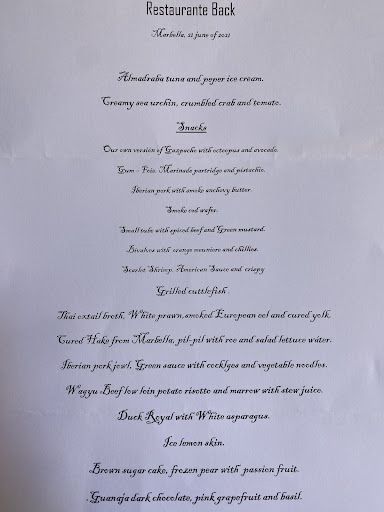 Restaurante Back
Marbella, 21 june of 2021
Almadraba tuna and peper ice cream.
Creamy sea urchin, crumbled crab and tomato.
Snacks
Our own version of Gazpacho with octopus and avocado.
Gum – Foie. Marinade partridge and pistachio.
Iberian pork with smoke anchovy butter.
Smoke cod wafer.
Small tube with spiced beef and Green mustard.
Bivalves with orange meuniere and chillies.
Scarlet Shrimp, American Sauce and crispy
Grilled cuttlefish.
Thai oxtail broth, White prawn, smoked European eel and cured yolk.
Cured Hake from Marbella, pil-pil with roe and salad lettuce water.
Iberian pork jowl, Green sauce with cocklges and vegetable noodles.
Wagyu Beef low loin potato risotto and marrow with stew juice.
Duck Royal with White asparagus.
Ice lemon skin.
Brown sugar cake, frozen pear with passion fruit.
Guanaja dark chocolate, pink grapefruit and basil.